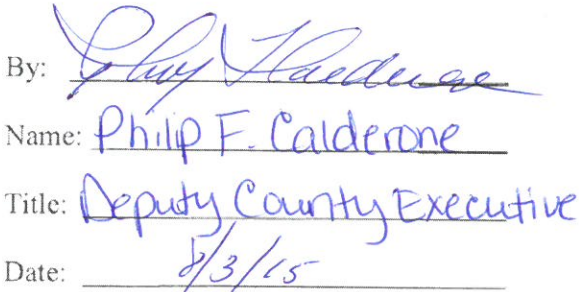 By:
Name: Philip F. Calderone
Title: Deputy County Executive
Date: 8/3/15